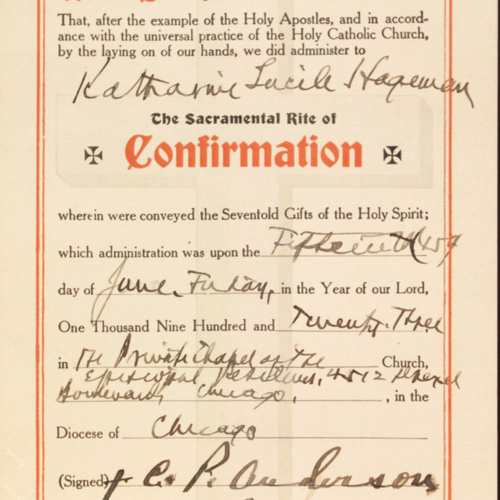 That, after the example of the Holy Apostles, and in accord-
ance with the universal practice of the Holy Catholic Church,
by the laying on of our hands, we did administer to
Katharine Lucile Hageman
The Sacramental Rite of
Confirmation
wherein were conveyed the Sevenfold Gifts of the Holy Spirit;
which administration was upon the Fifteenth
day of June, Friday, in the Year of our Lord,
One Thousand Nine Hundred and Twenty-Three
in The Private Chapel of the Church,
Episcopal Residence, 4512 Drexel
Boulevard, Chicago, , in the
Diocese of Chicago
(Signed) C. P. Anderson